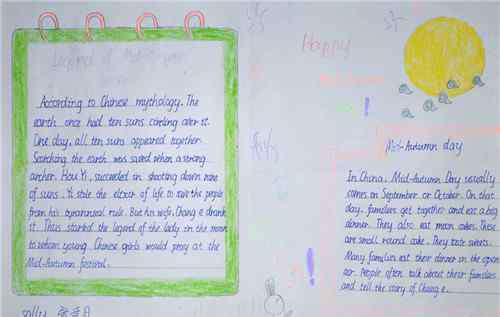 Legend of
According to Chinese mythology. The
earth once had ten suns circling over it.
One day, all ten suns appeared together.
Scorching the earth was saved when a strong
archer. Hou Yi, succeeded in shooting down nine
of suns. Yi stole the elixir of life to save the people
from his tyrannical rule. But his wife, Chang e drank
it. Thus started the legend of the lady in the moon
to whom young Chinese girls would pray at the
Mid-Autumn festival.
Sally
Happy
Mid-Autumn day
In China, Mid-Autumn Day usually
comes on September or October. On that
day, families get together and eat a big
dinner. They also eat moon cakes. These
are small round cake. They taste sweets.
Many families eat their dinner in the open
air. People often talk about their families
and tell the story of Chang e.